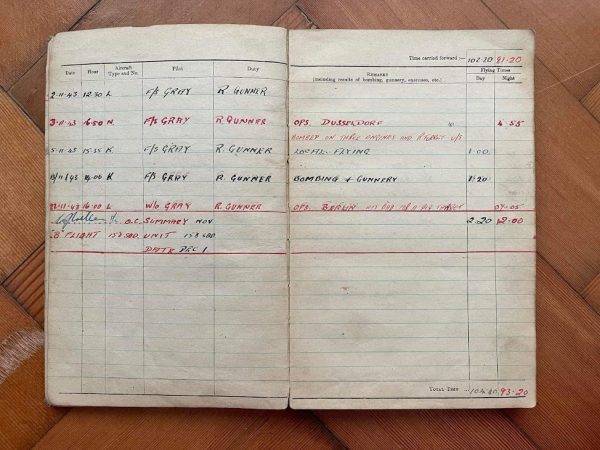 Time carried forward :— 102.20 81.20
Date Hour Aircraft Type and No. Pilot Duty Remarks (including results of bombing, gunnery, exercises, etc.) Flying Times Day Night
2.11.43 12.30 L F/S GRAY R GUNNER
3.11.43 16.50 N. F/S GRAY R GUNNER OPS. DUSSELDORF 4.55
BOMBED ON THREE ENGINES AND R TURRET U/S
5.11.43 15.35 K F/S GRAY R GUNNER LOCAL FLYING 1.00
/11/43 14.00 K F/S GRAY R. GUNNER BOMBING + GUNNERY 1.20
22.11.43 16.00 L W/O GRAY R. GUNNER OPS. BERLIN 07.05
B.C. SUMMARY NOV 2.20 12.00
"B" FLIGHT 158 SQD. UNIT 158 SQD.
DATE DEC 1
Total Time 93.20